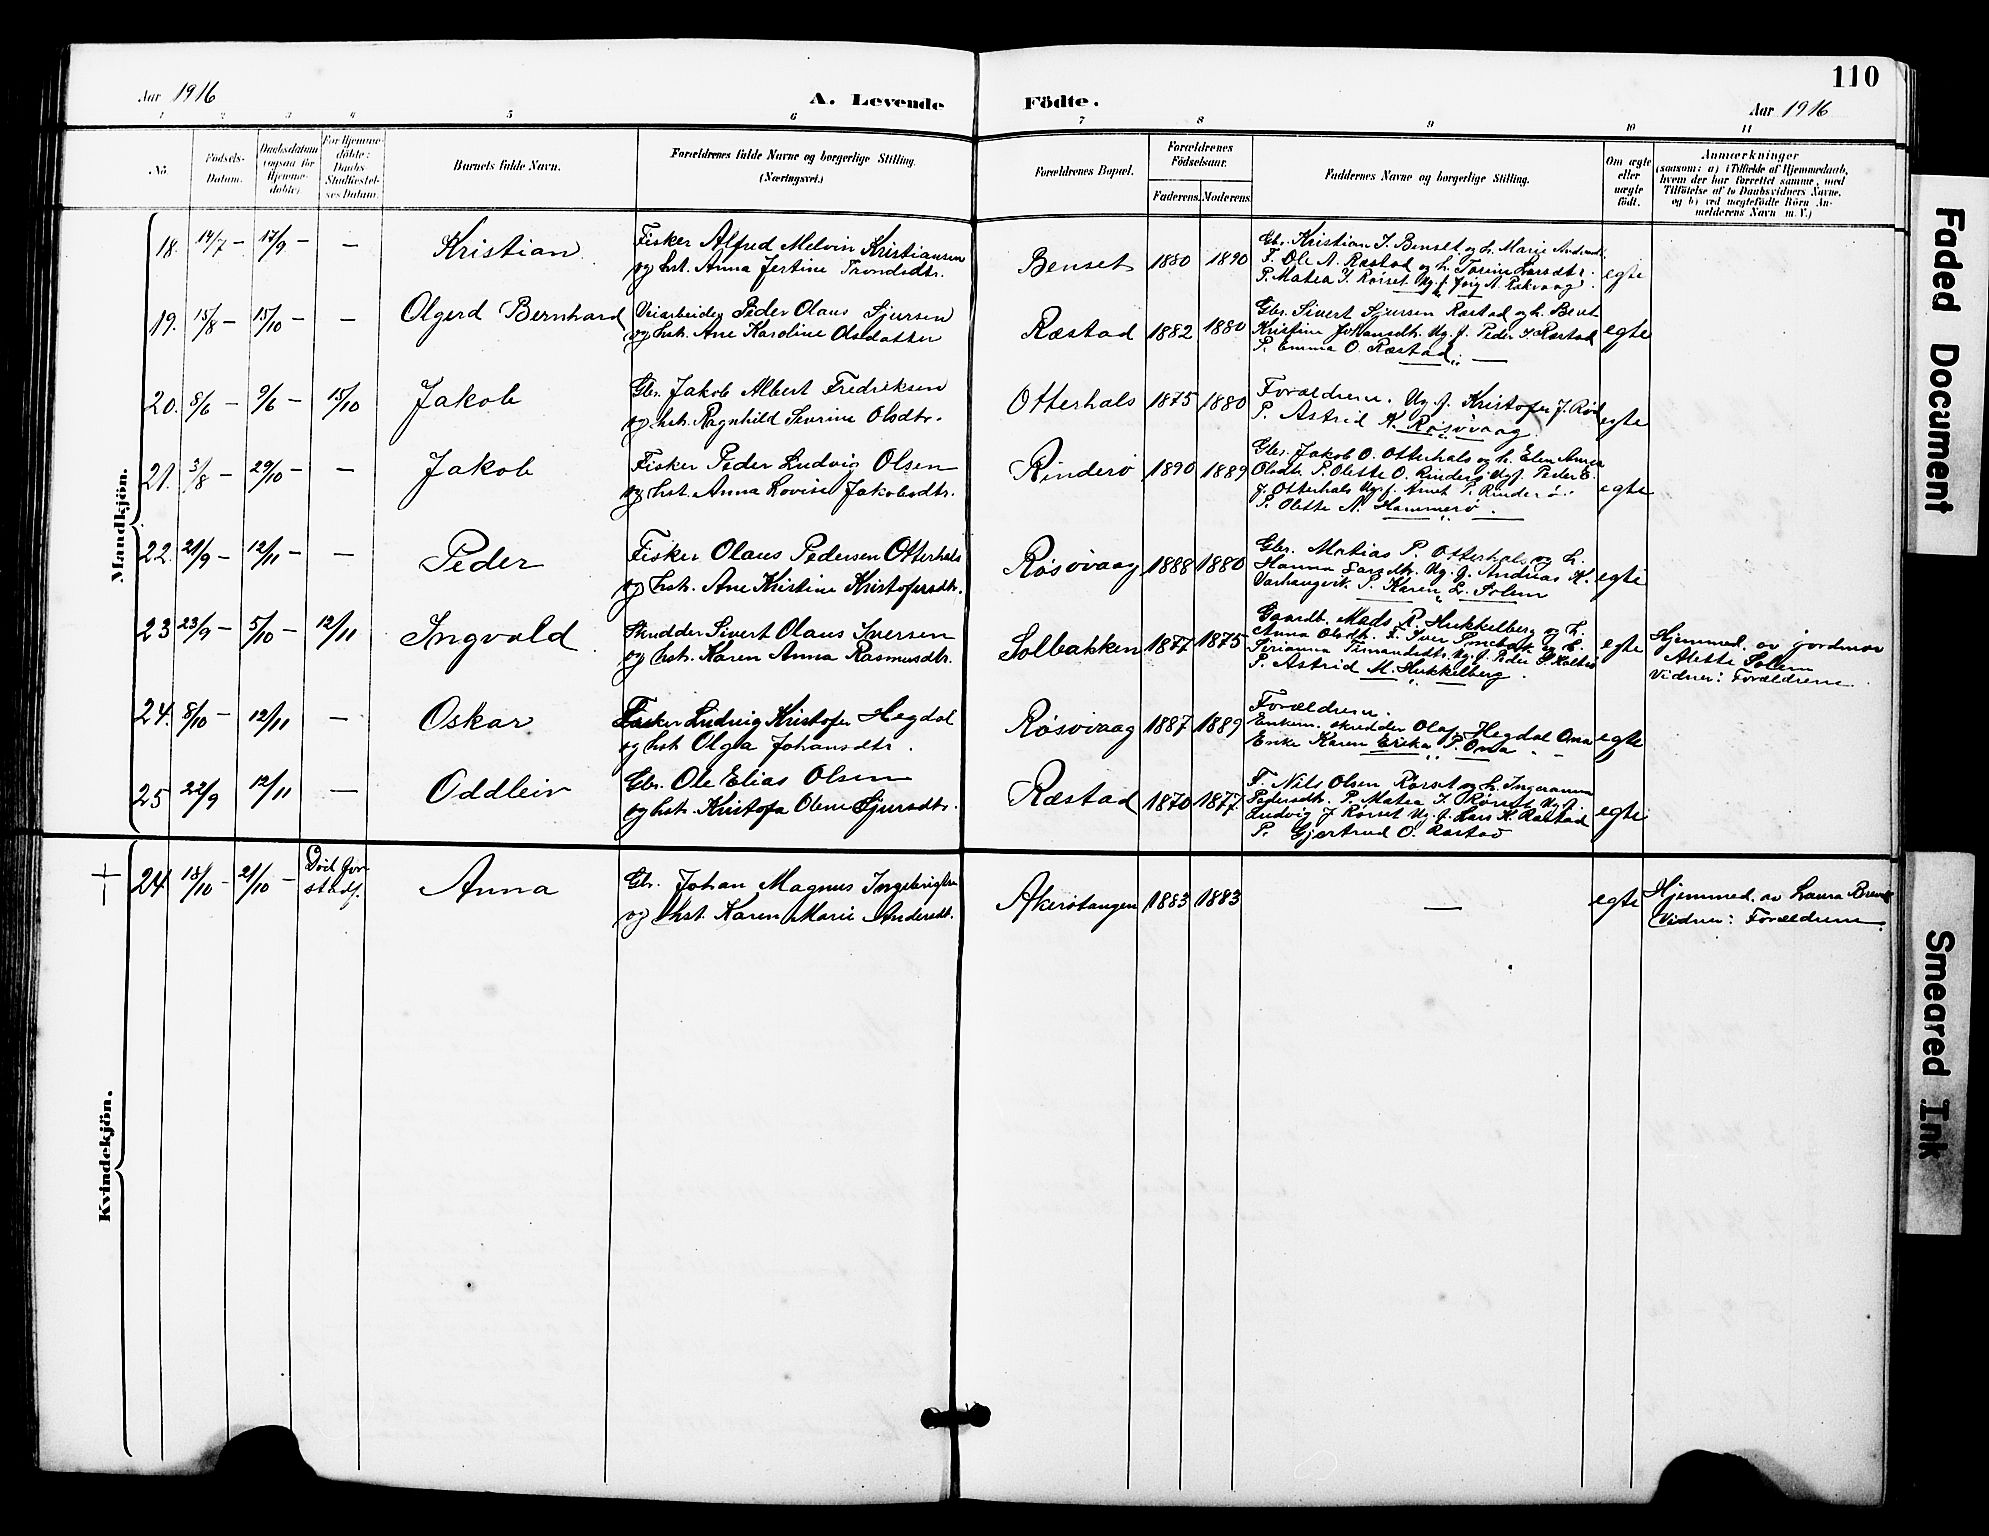 110
Aar 1916
A. Levende Födte.
Aar 1916
1 2 3 4 5 6 7 8 9 10 11
No.
Fødsels-Datum.
Daabsdatum (ogsaa for Hjemmedøbte)
For Hjemmedöbte: Daabs Stadfæstelses Datum.
Barnets fulde Navn.
Forældrenes fulde Navne og borgerlige Stilling. (Næringsvei.)
Forældrenes Bopæl.
Forældrenes Födselsaar.
Faderens. Moderens.
Faddernes Navne og borgerlige Stilling.
Om ægte eller uægte födt.
Anmærkninger
(saasom: a) i Tilfælde af Hjemmedaab, hvem der har forrettet samme, med Tilföielse af to Daabsvidners Navne. og b) ved uægtefödte Börn Anmelderens Navn m. V.)
Mandkjön.
18. 14/7 — 17/9 — — Kristian Fisker Alfred Melvin Kristiansen
og hst. Anna Jertine Trondsdtr. Benset 1880 1890 Gbr. Kristian J. Benset og h. Marie
F. Ole A. Ræstad og h. Larsdtr.
P. Matea J. Rørset Ug. f. A. egte
19. 15/8 — 15/10 — — Olgerd Bernhard Veiarbeider Peder Olaus Sjursen
og hst. Ane Karoline Olsdatter Ræstad 1882 1880 Gbr. Sivert Sjursen Ræstad og h. Berit
Kristine Johansdtr. Ug. f. Peder J. Ræstad
P. Emma O. Ræstad. — egte
20. 5/6 — 9/6 — 15/10 Jakob Gbr. Jakob Albert Fredriksen
og hst. Ragnhild Severine Olsdtr. Otterhals 1875 1880 Forældrene. Ug. f. Kristofer J.
P. Astrid K. Røsvvaag. egte
21. 3/8 — 29/10 — — Jakob Fisker Peder Ludvig Olsen
og hst. Anna Lovise Jakobsdtr. Rinderö 1890 1889 Gbr. Jakob O. Otterhals og h. Elen Anna
Olsdtr. P. Olette O. Rinderö Ug. f. Peder E.
J. Otterhals Ug. f. P. Rinderö
P. Olette N. Hammerö. egte
22. 21/9 — 12/11 — — Peder Fisker Olaus Pedersen Otterhals
og hst. Ane Kristine Kristofersdtr. Røsvvaag 1888 1880 Gbr. Matias P. Otterhals og h.
Hanna Larsdtr. Ug. f. Andreas K.
Varhaugvik P. Karen L. Solem egte
23 23/9 — 5/10 — 12/11 Ingvald Skredder Sivert Olaus Iversen
og hst. Karen Anna Rasmusdtr. Solbakken 1877 1875 Gaardb. Mads R. Hukkelberg og h.
Anna Olsdtr. F. Iver og h.
Ug. f. Peder S.
P. Astrid M. Hukkelberg. egte Hjemmed. av jordmor
Alette Solem
Vidner: Forældrene
24. 8/10 — 12/11 — Oskar Fisker Ludvig Kristofer Hegdal
og hst. Olga Johansdtr. Røsvvaag 1887 1889 Forældrene.
Enkem. skredder Olaf Hegdal Ona
Enke Karen Erika P. Ona egte
25 22/9 12/11 — Oddleiv Gbr. Ole Elias Olsen
og hst. Kristofa Oline Sjursdtr. Ræstad 1870 1877 F. Nils Olsen Rørset og h. Ingeranna
Pedersdtr. P. Matea J. Rørset Ug. f.
Ludvig J. Rørset Ug. f. Lars K. Ræstad
P. Gjertrud O. Ræstad egte
Kvindekjön.
24 18/10 — 21/10 — Död før
stadf. Anna Gbr. Johan Magnus Ingebrigtsen
og hst. Karen Marie Andersdtr. Akerstangen 1883 1883 — egte Hjemmed. av Laura
Vidner: Forældrene.
Faded Document
Smeared Ink